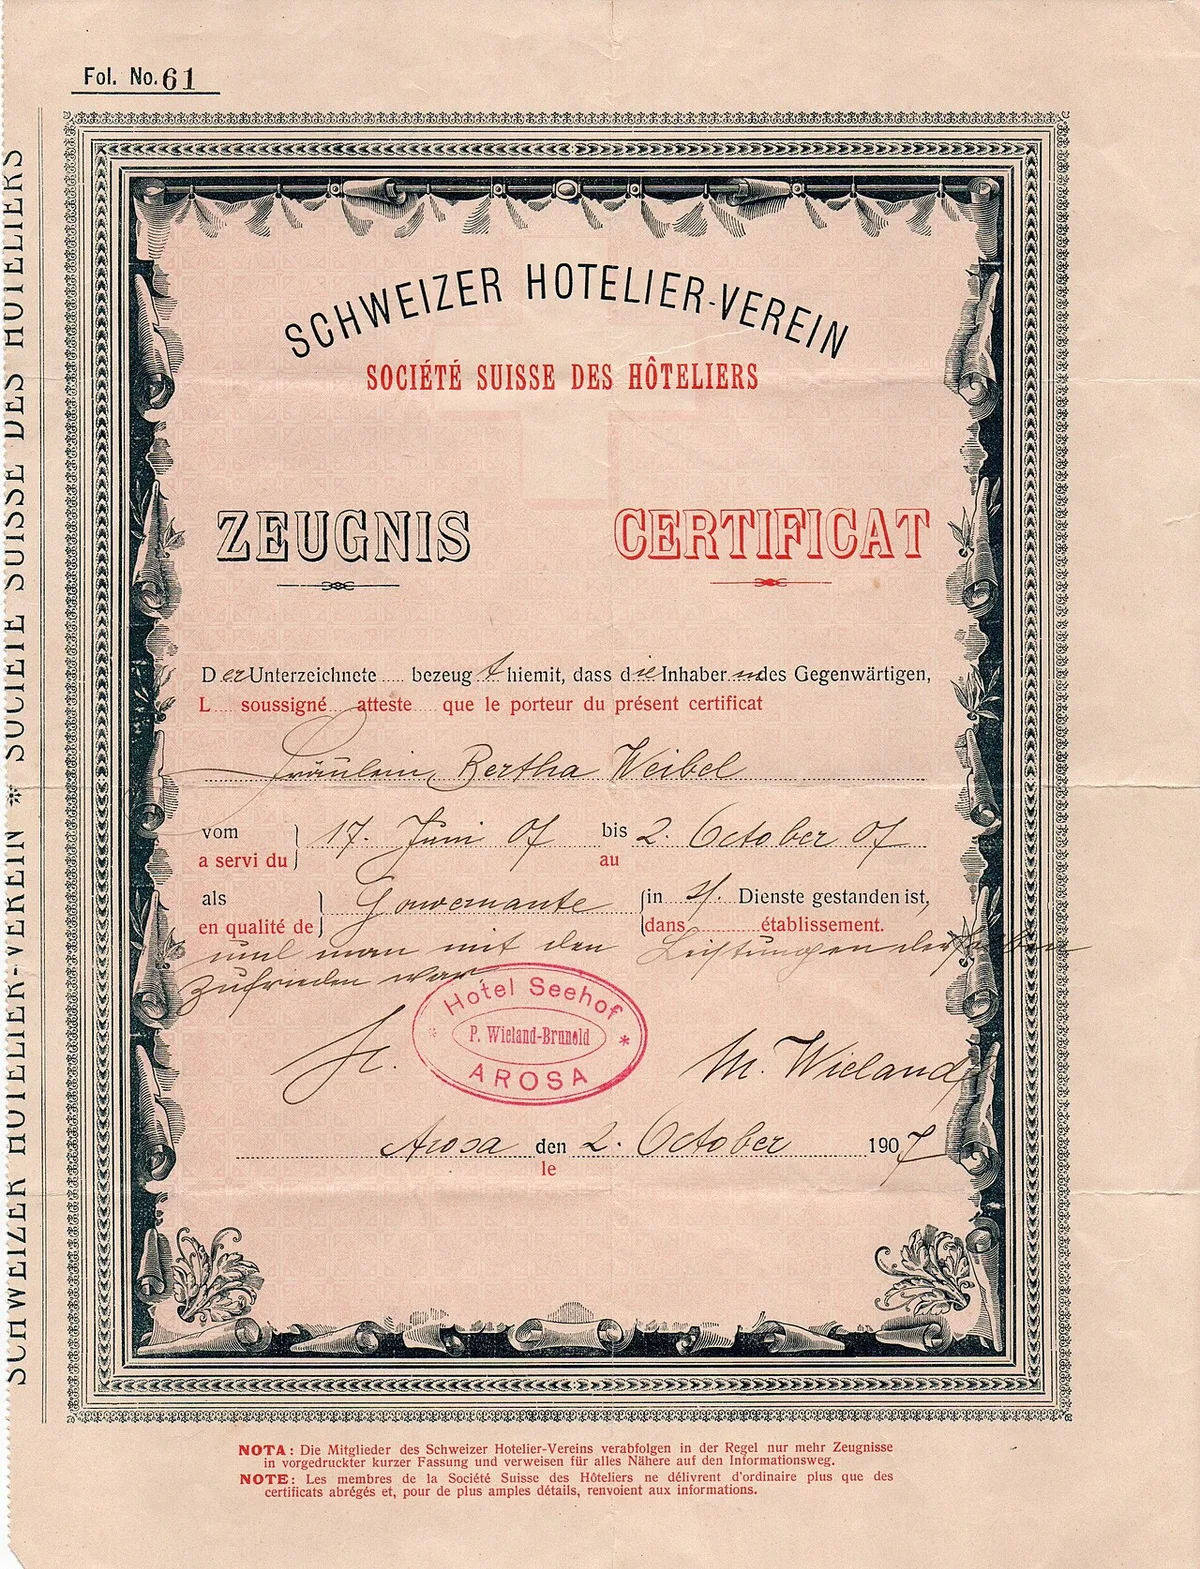 Fol. No. 61
SCHWEIZER HOTELIER-VEREIN * SOCIÉTÉ SUISSE DES HÔTELIERS
SCHWEIZER HOTELIER-VEREIN
SOCIÉTÉ SUISSE DES HÔTELIERS
ZEUGNIS CERTIFICAT
Der Unterzeichnete .... bezeugt hiemit, dass die Inhaberin des Gegenwärtigen,
L.... soussigné.... atteste.... que le porteur du présent certificat
Fräulein Bertha Weibel
vom 17. Juni 07 bis 2. October 07
a servi du au
als Gouvernante in Dienste gestanden ist,
en qualité de dans établissement.
und man mit den Leistungen derselben
zufrieden war.
Hotel Seehof
P. Wieland-Brunold
AROSA
M. Wieland
Arosa den 2. October 1907
le
NOTA: Die Mitglieder des Schweizer Hotelier-Vereins verabfolgen in der Regel nur mehr Zeugnisse
in vorgedruckter kurzer Fassung und verweisen für alles Nähere auf den Informationsweg.
NOTE: Les membres de la Société Suisse des Hôteliers ne délivrent d'ordinaire plus que des
certificats abrégés et, pour de plus amples détails, renvoient aux informations.